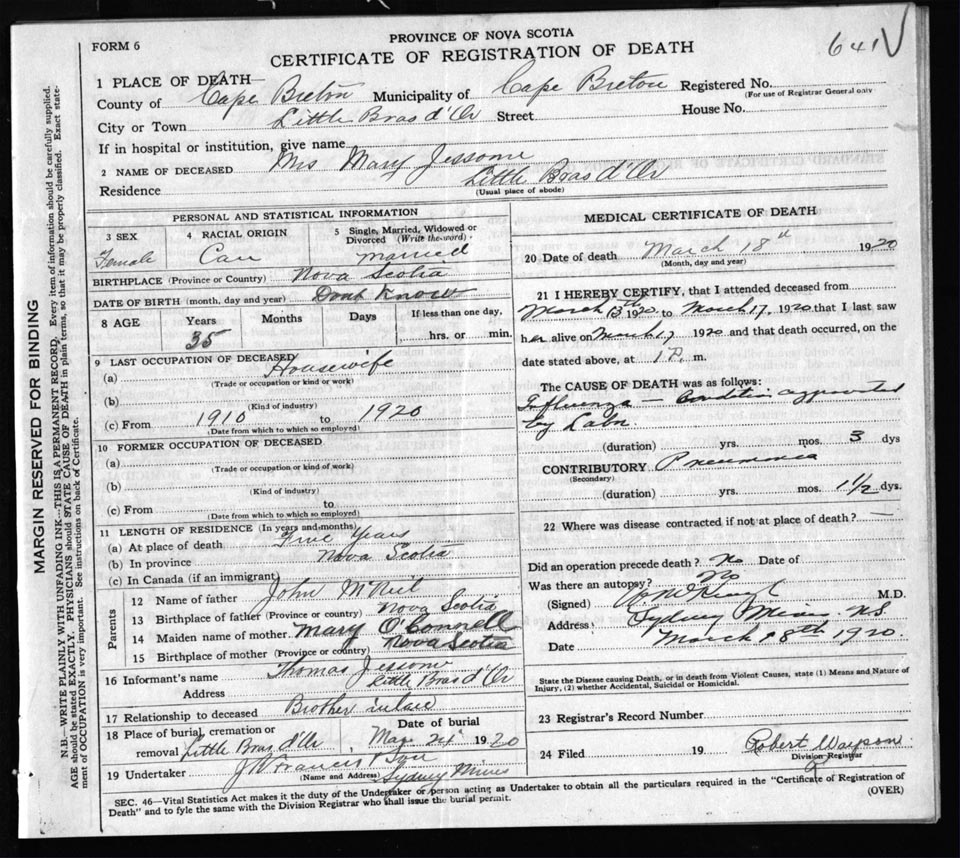 FORM 6
PROVINCE OF NOVA SCOTIA
CERTIFICATE OF REGISTRATION OF DEATH
641
1 PLACE OF DEATH—
County of Cape Breton Municipality of Cape Breton Registered No.
(For use of Registrar General only
City or Town Little Bras d'Or Street House No.
If in hospital or institution, give name
2 NAME OF DECEASED Mrs Mary Jessome
Residence Little Bras d'Or
(Usual place of abode)
PERSONAL AND STATISTICAL INFORMATION
3 SEX 4 RACIAL ORIGIN 5 Single, Married, Widowed or Divorced (Write the word)
Female Can married
BIRTHPLACE (Province or Country) Nova Scotia
DATE OF BIRTH (month, day and year) Dont Know
8 AGE Years Months Days If less than one day,
35 hrs. or min.
9 LAST OCCUPATION OF DECEASED
(a) Housewife
(Trade or occupation or kind or work)
(b)
(Kind of industry)
(c) From 1910 to 1920
(Date from which to which so employed)
10 FORMER OCCUPATION OF DECEASED
(a)
(Trade or occupation or kind of work)
(b)
(Kind of industry)
(c) From to
(Date from which to which so employed)
11 LENGTH OF RESIDENCE (In years and months)
(a) At place of death Five Years
(b) In province Nova Scotia
(c) In Canada (if an immigrant)
Parents
12 Name of father John McNeil
13 Birthplace of father (Province or country) Nova Scotia
14 Maiden name of mother Mary O'Connell
15 Birthplace of mother (Province or country) Nova Scotia
16 Informant's name Thomas Jessome
Address Little Bras d'Or
17 Relationship to deceased Brother inlaw
18 Place of burial, cremation or removal Little Bras d'Or Date of burial Mar 21 1920
19 Undertaker J W Francis & Son
(Name and Address) Sydney Mines
MEDICAL CERTIFICATE OF DEATH
20 Date of death March 18th 1920
(Month, day and year)
21 I HEREBY CERTIFY, that I attended deceased from
March 15th 1920 to March 17, 1920 that I last saw
her alive on March 17 1920 and that death occurred, on the
date stated above, at 1 P. m.
The CAUSE OF DEATH was as follows:
Influenza — Condition
by
(duration) yrs. mos. 3 dys
CONTRIBUTORY Pneumonia
(Secondary)
(duration) yrs. mos. 1 1/2 dys.
22 Where was disease contracted if not at place of death? —
Did an operation precede death? No Date of
Was there an autopsy? No
(Signed) M.D.
Address Sydney Mines N.S.
Date March 18th 1920.
State the Disease causing Death, or in death from Violent Causes, state (1) Means and Nature of
Injury, (2) whether Accidental, Suicidal or Homicidal.
23 Registrar's Record Number
24 Filed 19 Robert
Division Registrar
SEC. 46—Vital Statistics Act makes it the duty of the Undertaker or person acting as Undertaker to obtain all the particulars required in the "Certificate of Registration of
Death" and to fyle the same with the Division Registrar who shall issue the burial permit.
(OVER)
MARGIN RESERVED FOR BINDING
N.B.—WRITE PLAINLY WITH UNFADING INK—THIS IS A PERMANENT RECORD. Every item of information should be carefully supplied.
AGE should be stated EXACTLY. PHYSICIANS should STATE CAUSE OF DEATH in plain terms, so that it may be properly classified. Exact state-
ment of OCCUPATION is very important. See instructions on back of Certificate.